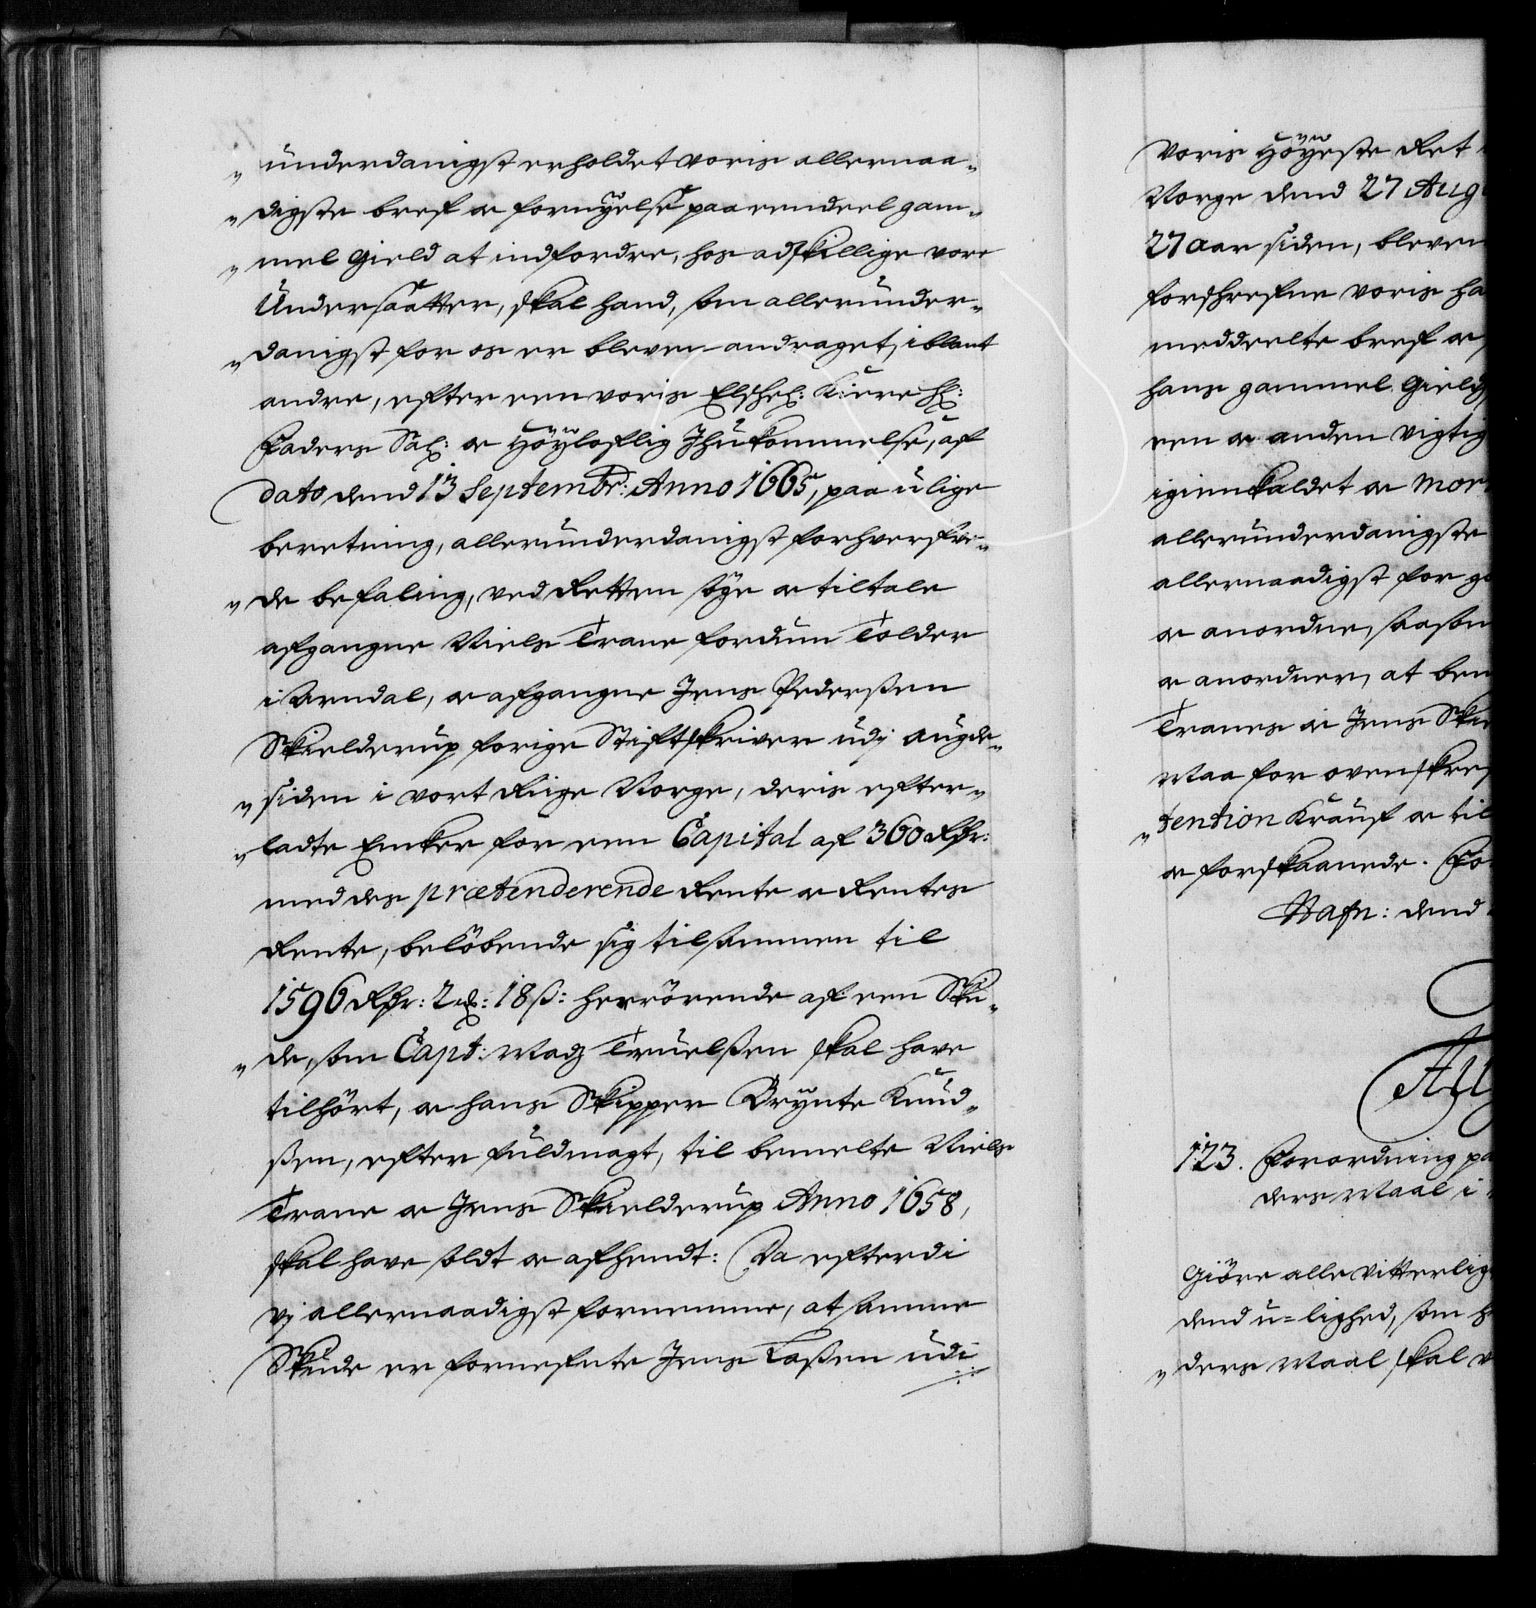 underdanigst erholdet voris allernaa„
„digste bref oc fornyelse paa eendeel gam„
„mel Gield at indfordre, hos adskillige vore
Undersaatter, skal hand, som allerunder„
„danigst for os er bleven andraget, iblant
andre, efter een voris Elschel: Kiere H:
Faders Sal: oc Höyloflig Ihukommelse, af
dato dend 13 Septembr: Anno 1665, paa ulige
beretning, allerunderdanigst forhverfve„
„de befaling, ved Retten söge oc tiltale
afgangne Niels Trane fordum Tolder
i Arndal, oc afgangne Jens Pederßen
Skielderup forige Stiftskriver udj Augde„
„siden i vort Riige Norge, deris efter„
„ladte Encker for een Capital af 360 Rdr:
med des prætenderende Rente oc Rentes
Rente, belöbende sig tilsammen til
1596 Rdr: 2 ℳ: 18 ß: herrörende af een Sku„
„de, som Capt: Madz Truelßen skal have
tilhört, oc hans Skipper Brynte Knud„
ßen, efter fuldmagt, til bemelte Niels
Trane oc Jens Skielderup Anno 1658,
skal have soldt oc afhendt: Da efterdi
vj allernaadigst fornemme, at samme
Skude er fornefnte Jens Laßen udi
Voris Höyeste Ret
Norge dend 27 Aug
27 aar siden, bleven
forschrefne voris ha
meddeelte bref oc
hans gammel Gield
een oc anden vigtig
igienkaldet oc mor
allerunderdanigste
allernaadigst for go
oc anordne, saasom
oc anordner, at bem
Tranes oc Jens Skie
Maa for ovenskref
„tention Krauf oc til
oc forskaanede. Fo
Hafn: dend
123. Forordning pa
ders Maal i
Giöre alle vitterligt
dend u=lighed, som h
„ders Maal skal v